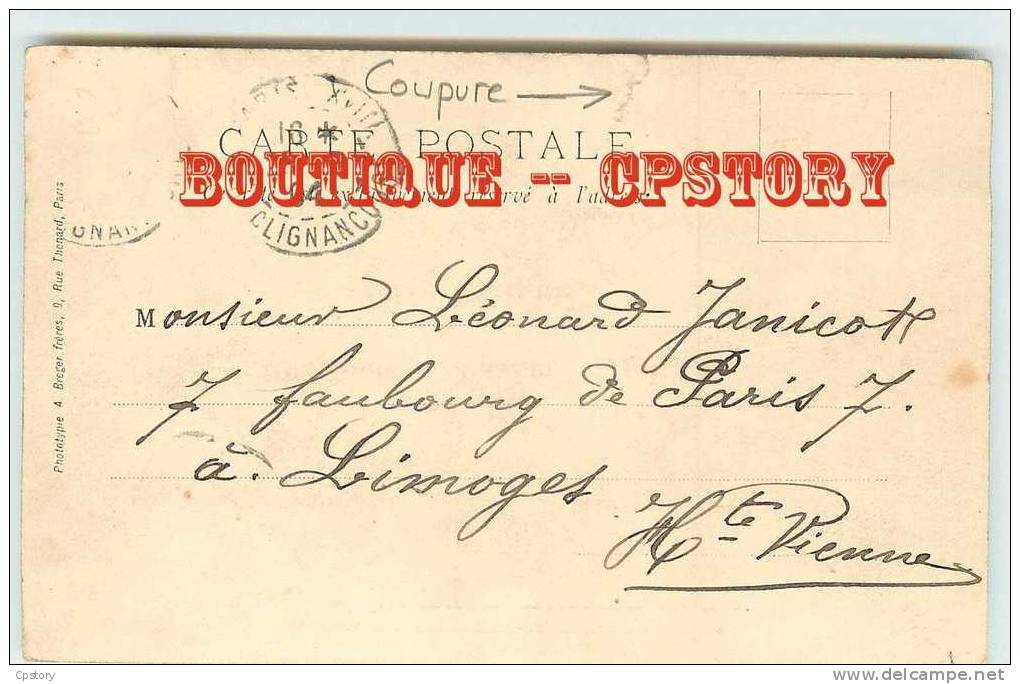 Coupure →
CARTE POSTALE
BOUTIQUE -- CPSTORY
réservé à
CLIGNANCO
GNAN
Phototypie A. Breger frères, 9, Rue Thenard, Paris
Monsieur Léonard Janicot
7 faubourg de Paris 7.
à. Limoges
Hte Vienne
Cpstory
www.delcampe.net